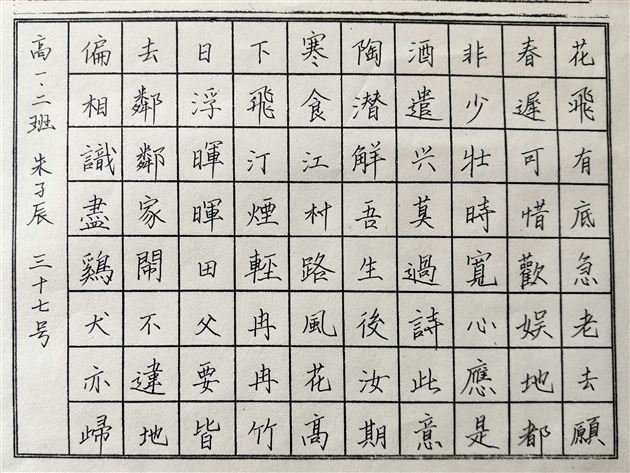 花飛有底急老去願
春遲可惜歡娛地都
非少壯時寬心應是
酒遣兴莫過詩此意
陶潜解吾生後汝期
寒食江村路風花高
下飛汀煙輕冉冉竹
日浮暉暉田父要皆
去鄰鄰家閙不違地
偏相識盡鷄犬亦歸
高一.二班 朱子辰 三十七号